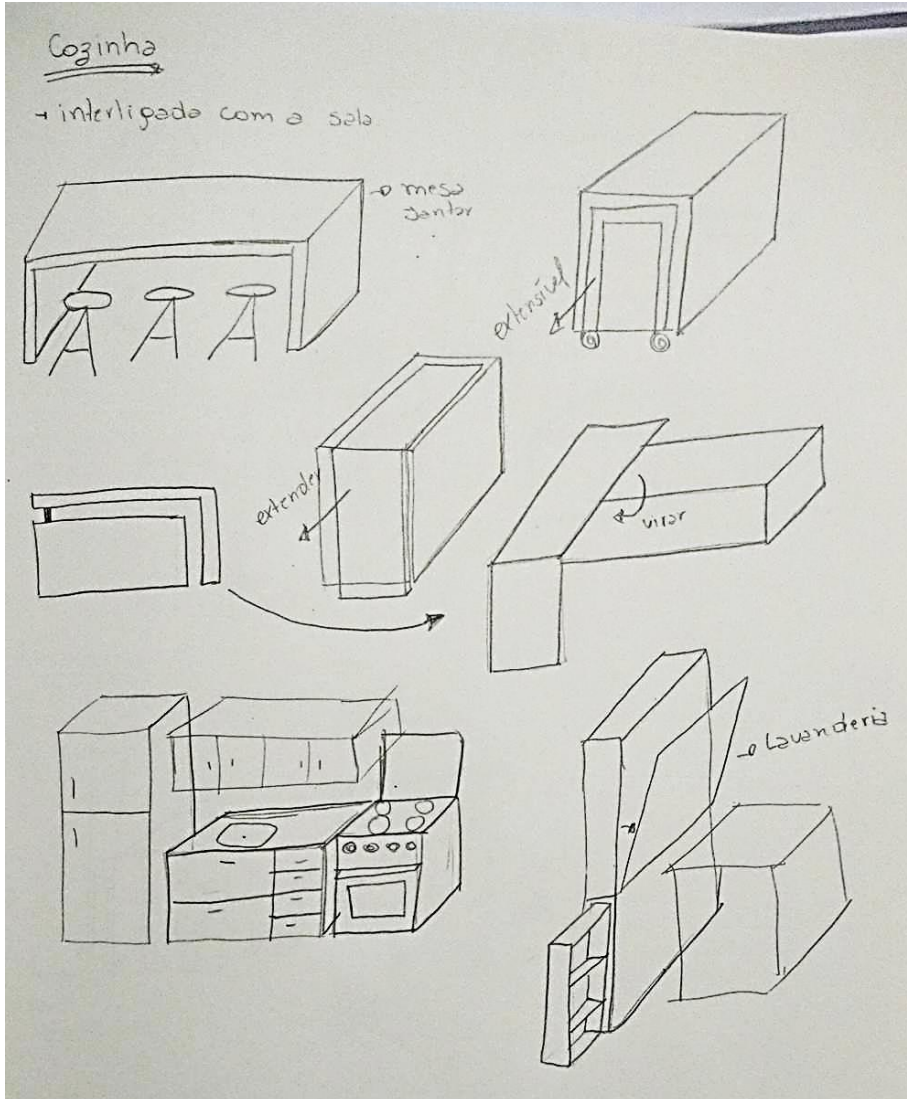 Cozinha
→ interligada com a sala
→ mesa
Jantar
extensível
extender
virar
→ Lavanderia